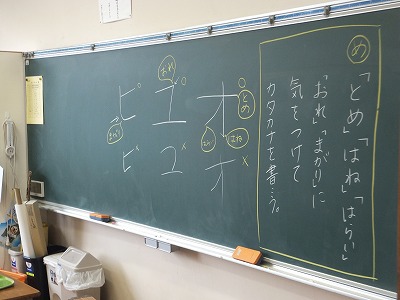 め
「とめ」「はね」「はらい」
「おれ」「まがり」に
気をつけて
カタカナを書こう。
オ○
とめ
はね
はらい
オ×
おれ
ユ○
ユ×
ピ○
まがり
ピ×